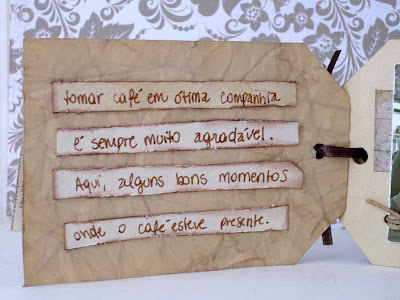 tomar café em ótima companhia
é sempre muito agradável.
Aqui, alguns bons momentos
onde o café esteve presente.